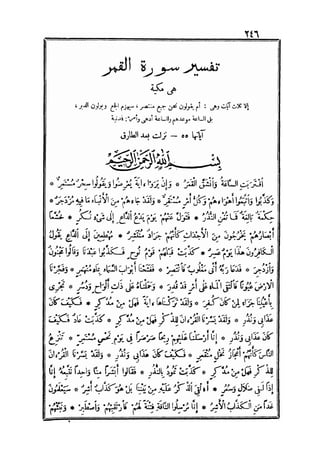 ٢٤٦
تفسير سورة القمر
هى مكية
إلا ثلاث آيات وهى : أم يقولون نحن جميع منتصر ، سيهزم الجمع ويولون الدبر ،
بل الساعة موعدهم والساعة أدهى وأمر : فمدنية
آياتها ٥٥ — نزلت بعد الطارق
بِسْمِ اللَّهِ الرَّحْمَٰنِ الرَّحِيمِ
اقْتَرَبَتِ السَّاعَةُ وَانْشَقَّ الْقَمَرُ * وَإِنْ يَرَوْا ءَايَةً يُعْرِضُوا وَيَقُولُوا سِحْرٌ مُسْتَمِرٌّ *
وَكَذَّبُوا وَاتَّبَعُوا أَهْوَاءَهُمْ وَكُلُّ أَمْرٍ مُسْتَقِرٌّ * وَلَقَدْ جَاءَهُمْ مِنَ الْأَنْبَاءِ مَا فِيهِ مُزْدَجَرٌ *
حِكْمَةٌ بَالِغَةٌ فَمَا تُغْنِ النُّذُرُ * فَتَوَلَّ عَنْهُمْ يَوْمَ يَدْعُ الدَّاعِ إِلَى شَيْءٍ نُكُرٍ * خُشَّعًا
أَبْصَارُهُمْ يَخْرُجُونَ مِنَ الْأَجْدَاثِ كَأَنَّهُمْ جَرَادٌ مُنْتَشِرٌ * مُهْطِعِينَ إِلَى الدَّاعِ يَقُولُ
الْكَافِرُونَ هَذَا يَوْمٌ عَسِرٌ * كَذَّبَتْ قَبْلَهُمْ قَوْمُ نُوحٍ فَكَذَّبُوا عَبْدَنَا وَقَالُوا مَجْنُونٌ
وَازْدُجِرَ * فَدَعَا رَبَّهُ أَنِّي مَغْلُوبٌ فَانْتَصِرْ * فَفَتَحْنَا أَبْوَابَ السَّمَاءِ بِمَاءٍ مُنْهَمِرٍ * وَفَجَّرْنَا
الْأَرْضَ عُيُونًا فَالْتَقَى الْمَاءُ عَلَى أَمْرٍ قَدْ قُدِرَ * وَحَمَلْنَاهُ عَلَى ذَاتِ أَلْوَاحٍ وَدُسُرٍ * تَجْرِي
بِأَعْيُنِنَا جَزَاءً لِمَنْ كَانَ كُفِرَ * وَلَقَدْ تَرَكْنَاهَا ءَايَةً فَهَلْ مِنْ مُدَّكِرٍ * فَكَيْفَ كَانَ
عَذَابِي وَنُذُرِ * وَلَقَدْ يَسَّرْنَا الْقُرْءَانَ لِلذِّكْرِ فَهَلْ مِنْ مُدَّكِرٍ * كَذَّبَتْ عَادٌ فَكَيْفَ
كَانَ عَذَابِي وَنُذُرِ * إِنَّا أَرْسَلْنَا عَلَيْهِمْ رِيحًا صَرْصَرًا فِي يَوْمِ نَحْسٍ مُسْتَمِرٍّ * تَنْزِعُ
النَّاسَ كَأَنَّهُمْ أَعْجَازُ نَخْلٍ مُنْقَعِرٍ * فَكَيْفَ كَانَ عَذَابِي وَنُذُرِ * وَلَقَدْ يَسَّرْنَا الْقُرْءَانَ
لِلذِّكْرِ فَهَلْ مِنْ مُدَّكِرٍ * كَذَّبَتْ ثَمُودُ بِالنُّذُرِ * فَقَالُوا أَبَشَرًا مِنَّا وَاحِدًا نَتَّبِعُهُ إِنَّا
إِذًا لَفِي ضَلَالٍ وَسُعُرٍ * أَءُلْقِيَ الذِّكْرُ عَلَيْهِ مِنْ بَيْنِنَا بَلْ هُوَ كَذَّابٌ أَشِرٌ * سَيَعْلَمُونَ
غَدًا مَنِ الْكَذَّابُ الْأَشِرُ * إِنَّا مُرْسِلُوا النَّاقَةِ فِتْنَةً لَهُمْ فَارْتَقِبْهُمْ وَاصْطَبِرْ * وَنَبِّئْهُمْ